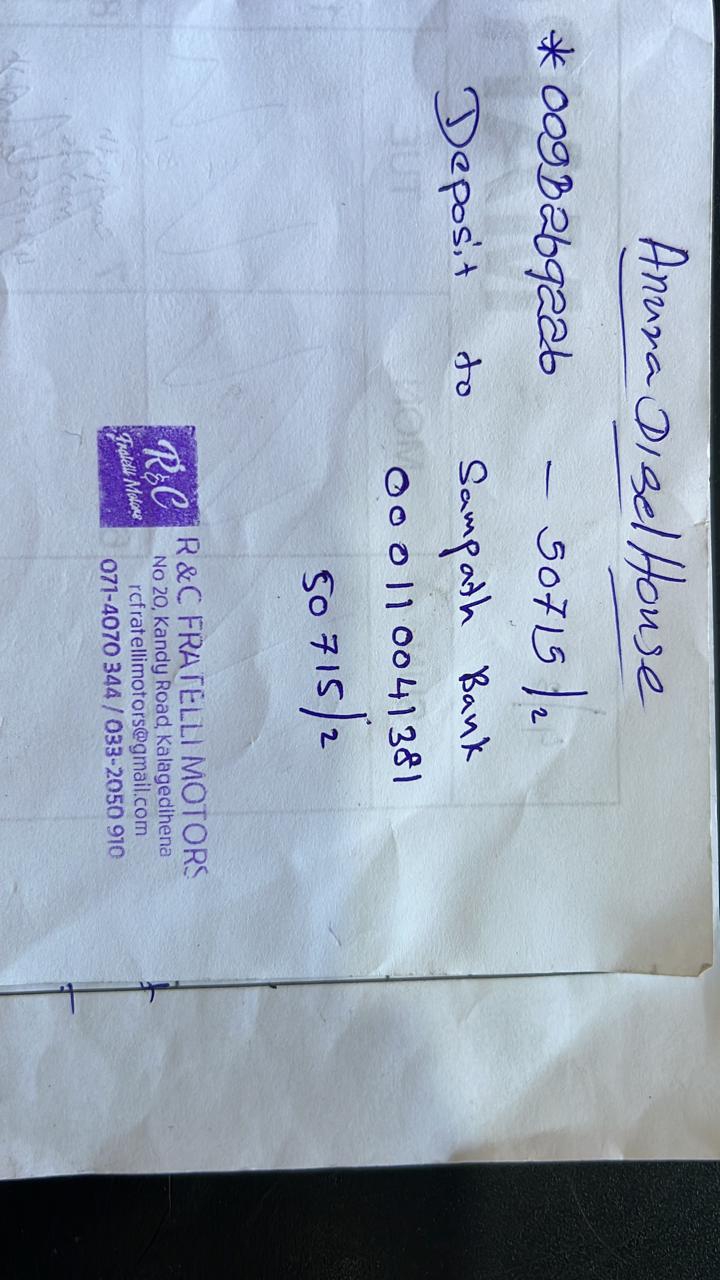 Anura Disel House
* 009D2b922b — 50715/2
Deposit to Sampath Bank
000110041381
50715/2
R&C
Fratelli Motors
R & C FRATELLI MOTORS
No 20, Kandy Road, Kalagedihena
rcfratellimotors@gmail.com
071-4070 344 / 033-2050 910